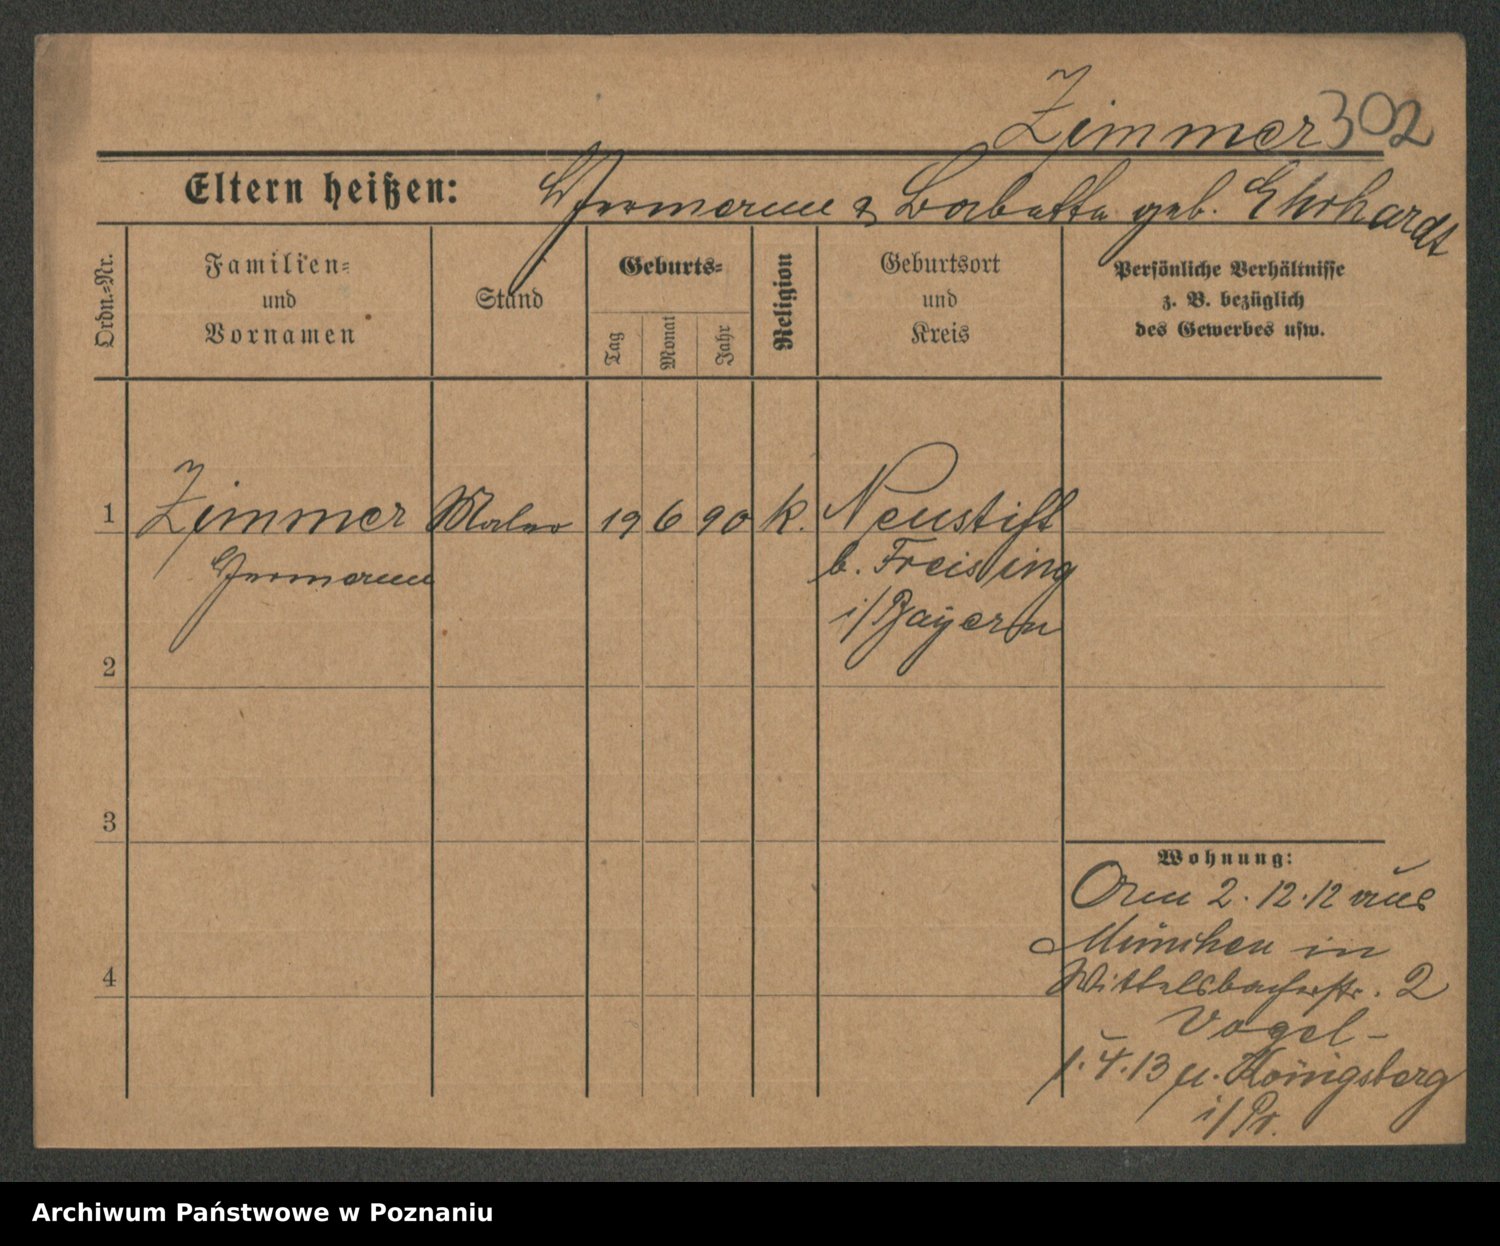 Zimmer 302
Eltern heißen: Hermann & Babette geb. Ehrhardt
Ordn.-Nr.
Familien-
und
Vornamen
Stand
Geburts-
Tag
Monat
Jahr
Religion
Geburtsort
und
Kreis
Persönliche Verhältnisse
z. B. bezüglich
des Gewerbes usw.
1 Zimmer Maler 19 6 90 k. Neustift
Hermann b. Freising
i/Bayern
2
3
4
Wohnung:
2.12.12 aus
München in
Wittelsbacherstr. 2
Vogel -
1.4.13 n. Königsberg
i/Pr.
Archiwum Państwowe w Poznaniu